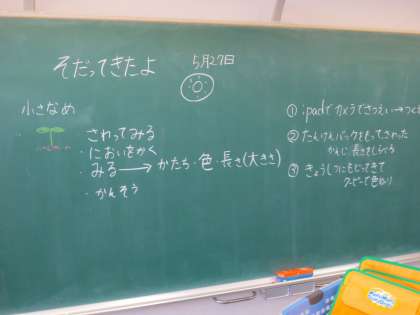 そだってきたよ 5月27日
小さなめ
・さわってみる
・においをかく
・みる→かたち・色・長さ(大きさ)
・かんそう
① ipadでカメラでさつえい→つく
② たんけんバックをもってさわった
かんじ 長さをしらべる
③ きょうしつにもどってきて
クーピーで色ぬり